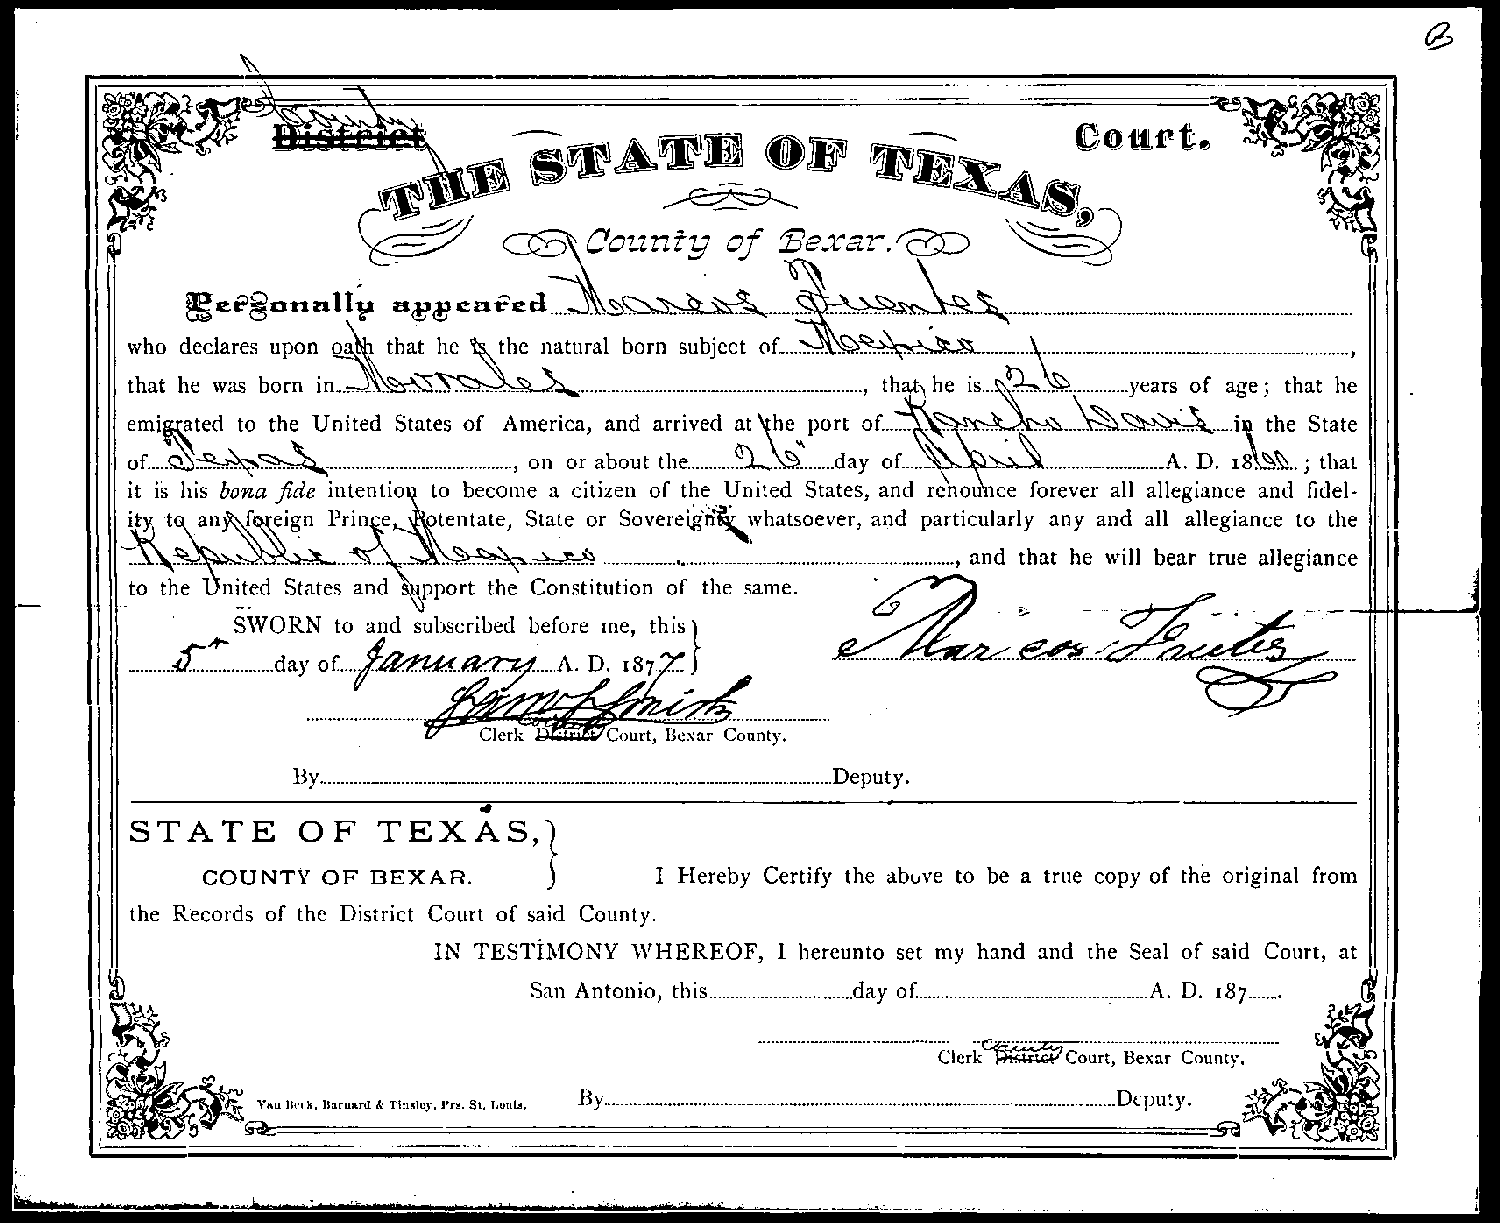 B
County
District Court.
THE STATE OF TEXAS,
County of Bexar.
Personally appeared Marcos Fuentes
who declares upon oath that he is the natural born subject of Mexico ,
that he was born in Morrales , that he is 26 years of age; that he
emigrated to the United States of America, and arrived at the port of Rancho Davis in the State
of Texas , on or about the 26" day of April A. D. 18 ; that
it is his bona fide intention to become a citizen of the United States, and renounce forever all allegiance and fidel-
ity to any foreign Prince, Potentate, State or Sovereignty whatsoever, and particularly any and all allegiance to the
Republic of Mexico , and that he will bear true allegiance
to the United States and support the Constitution of the same.
SWORN to and subscribed before me, this
5th day of January A. D. 1877
Marcos Fuetes
Sam S Smith
County
Clerk District Court, Bexar County.
By Deputy.
STATE OF TEXAS,
COUNTY OF BEXAR.
I Hereby Certify the above to be a true copy of the original from
the Records of the District Court of said County.
IN TESTIMONY WHEREOF, I hereunto set my hand and the Seal of said Court, at
San Antonio, this day of A. D. 187 .
County
Clerk District Court, Bexar County.
Van Beek, Barnard & Tinsley, Prs. St. Louis.
By Deputy.